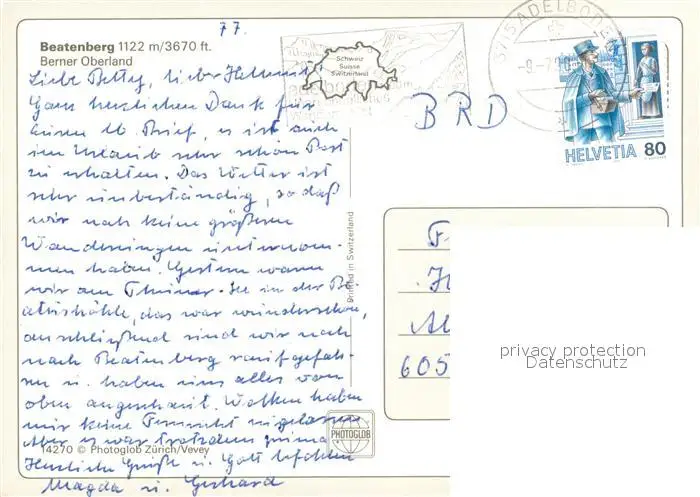 7 7.
Beatenberg 1122 m/3670 ft.
Berner Oberland
Liebe Betty, lieber Hellmut
Ganz herzlichen Dank für
euren lb Brief, es ist auch
im Urlaub sehr schön Post
zu erhalten. Das Wetter ist
sehr unbeständig, so daß
wir noch keine größeren
Wanderungen unternom-
men haben. Gestern waren
wir am Thuner-See in der Be
atushöhle, das war wunderschön,
anschließend sind wir noch
nach Beatenberg raufgefah-
ren u. haben uns alles von
oben angeschaut. Wolken haben
mir keine Fernsicht zugelassen
Aber es war trotzdem prima
Herzliche Grüße u. Gott befohlen
Magda u. Gerhard
14270 © Photoglob Zürich/Vevey
PHOTOGLOB
Printed in Switzerland
Schweiz
Suisse
Switzerland
3715 ADELBODEN
HELVETIA 80
BRD
F
H
Al
605
privacy protection
Datenschutz